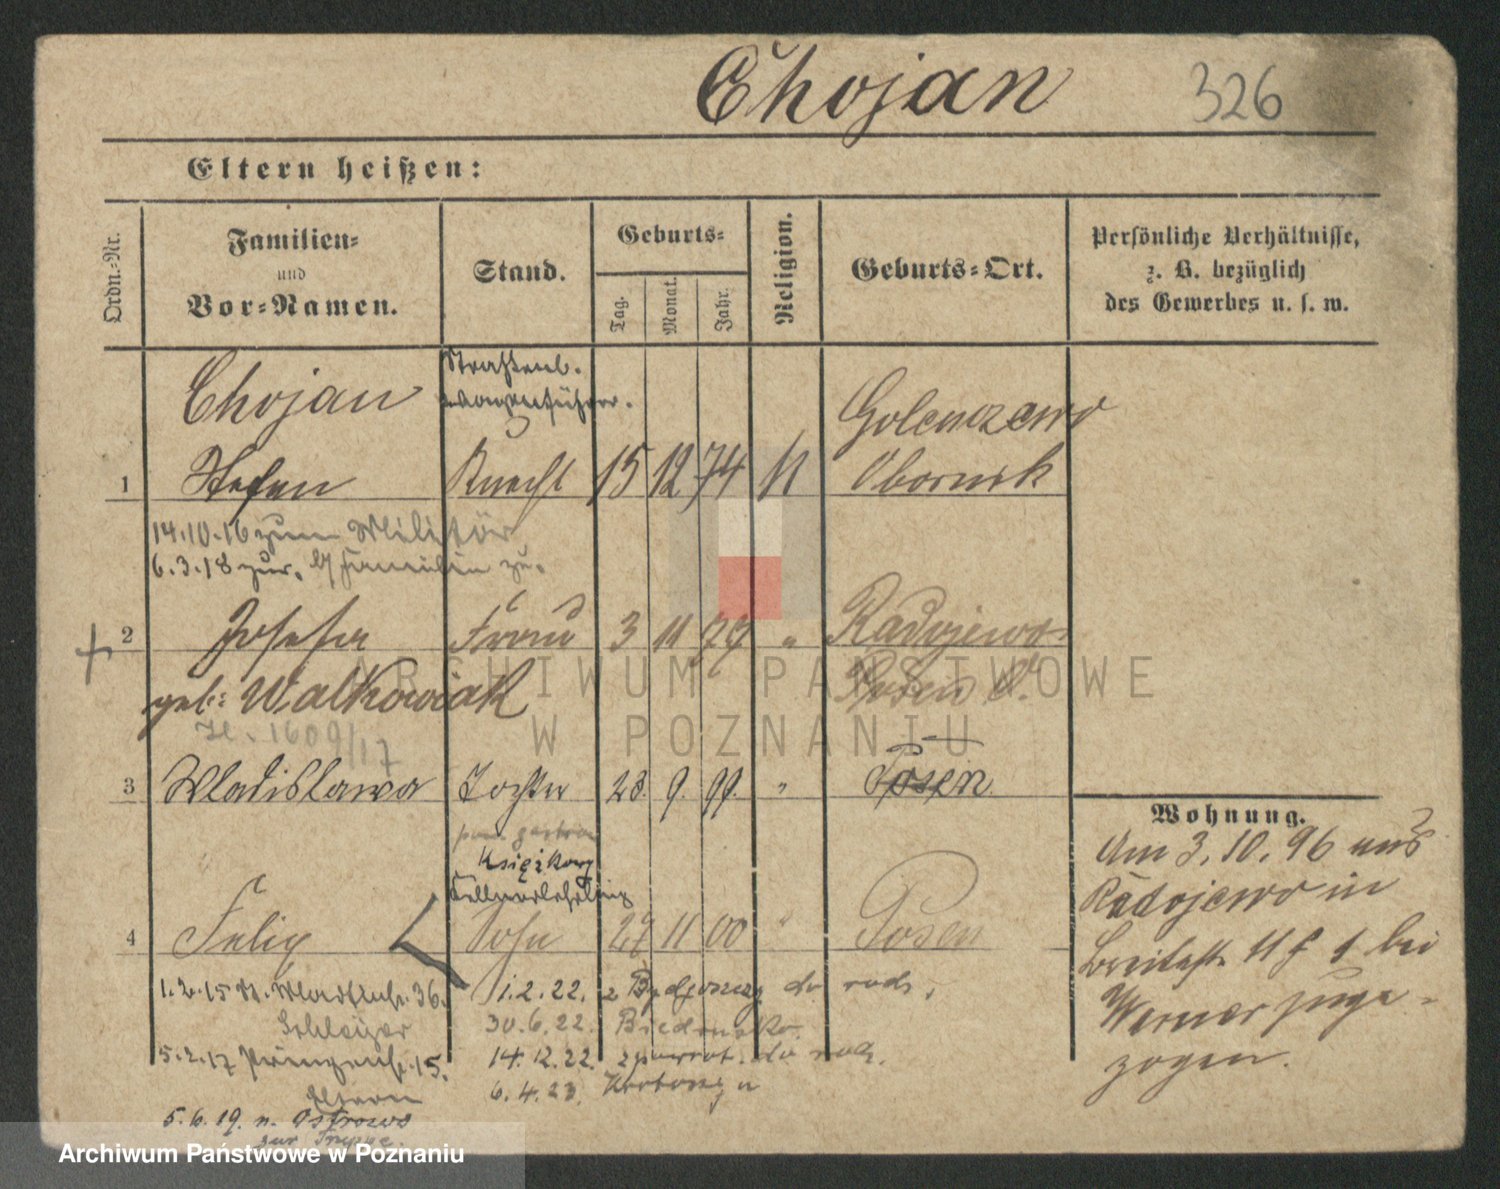 Chojan 326
Eltern heißen:
Ordn.-Nr.
Familien-
und
Vor-Namen.
Stand.
Geburts-
Tag.
Monat.
Jahr.
Religion.
Geburts-Ort.
Persönliche Verhältnisse,
z. B. bezüglich
des Gewerbes u. s. w.
Chojan
Straßenb.
wagenführer.
Golenczewo
1 Stefan Knecht 15 12 74 K Obornik
14.10.16 zum Militär
6.3.18 zur. Familie zu.
2 Josefa Frau 3 11 77 " Radojewo
geb: Walkowiak Posen O.
1609/17
3 Wladislawa Tochter 28. 9. 99. " Posen
Książkowy
Kellnerlehrling
4 Felix Sohn 27 11 00 " Posen
1.2.15 36.
5.2.17 15.
Eltern
5.6.19. n. Ostrowo
zur Truppe.
1.2.22. z Bydgoszczy do rodz.
30.6.22. Biedrusko
14.12.22. z powrot. do rodz.
6.4.23.
Wohnung.
Am 3.10.96 aus
Radojewo in
Breitestr. bei
Werner zuge-
zogen.
ARCHIWUM PAŃSTWOWE
W POZNANIU
Archiwum Państwowe w Poznaniu